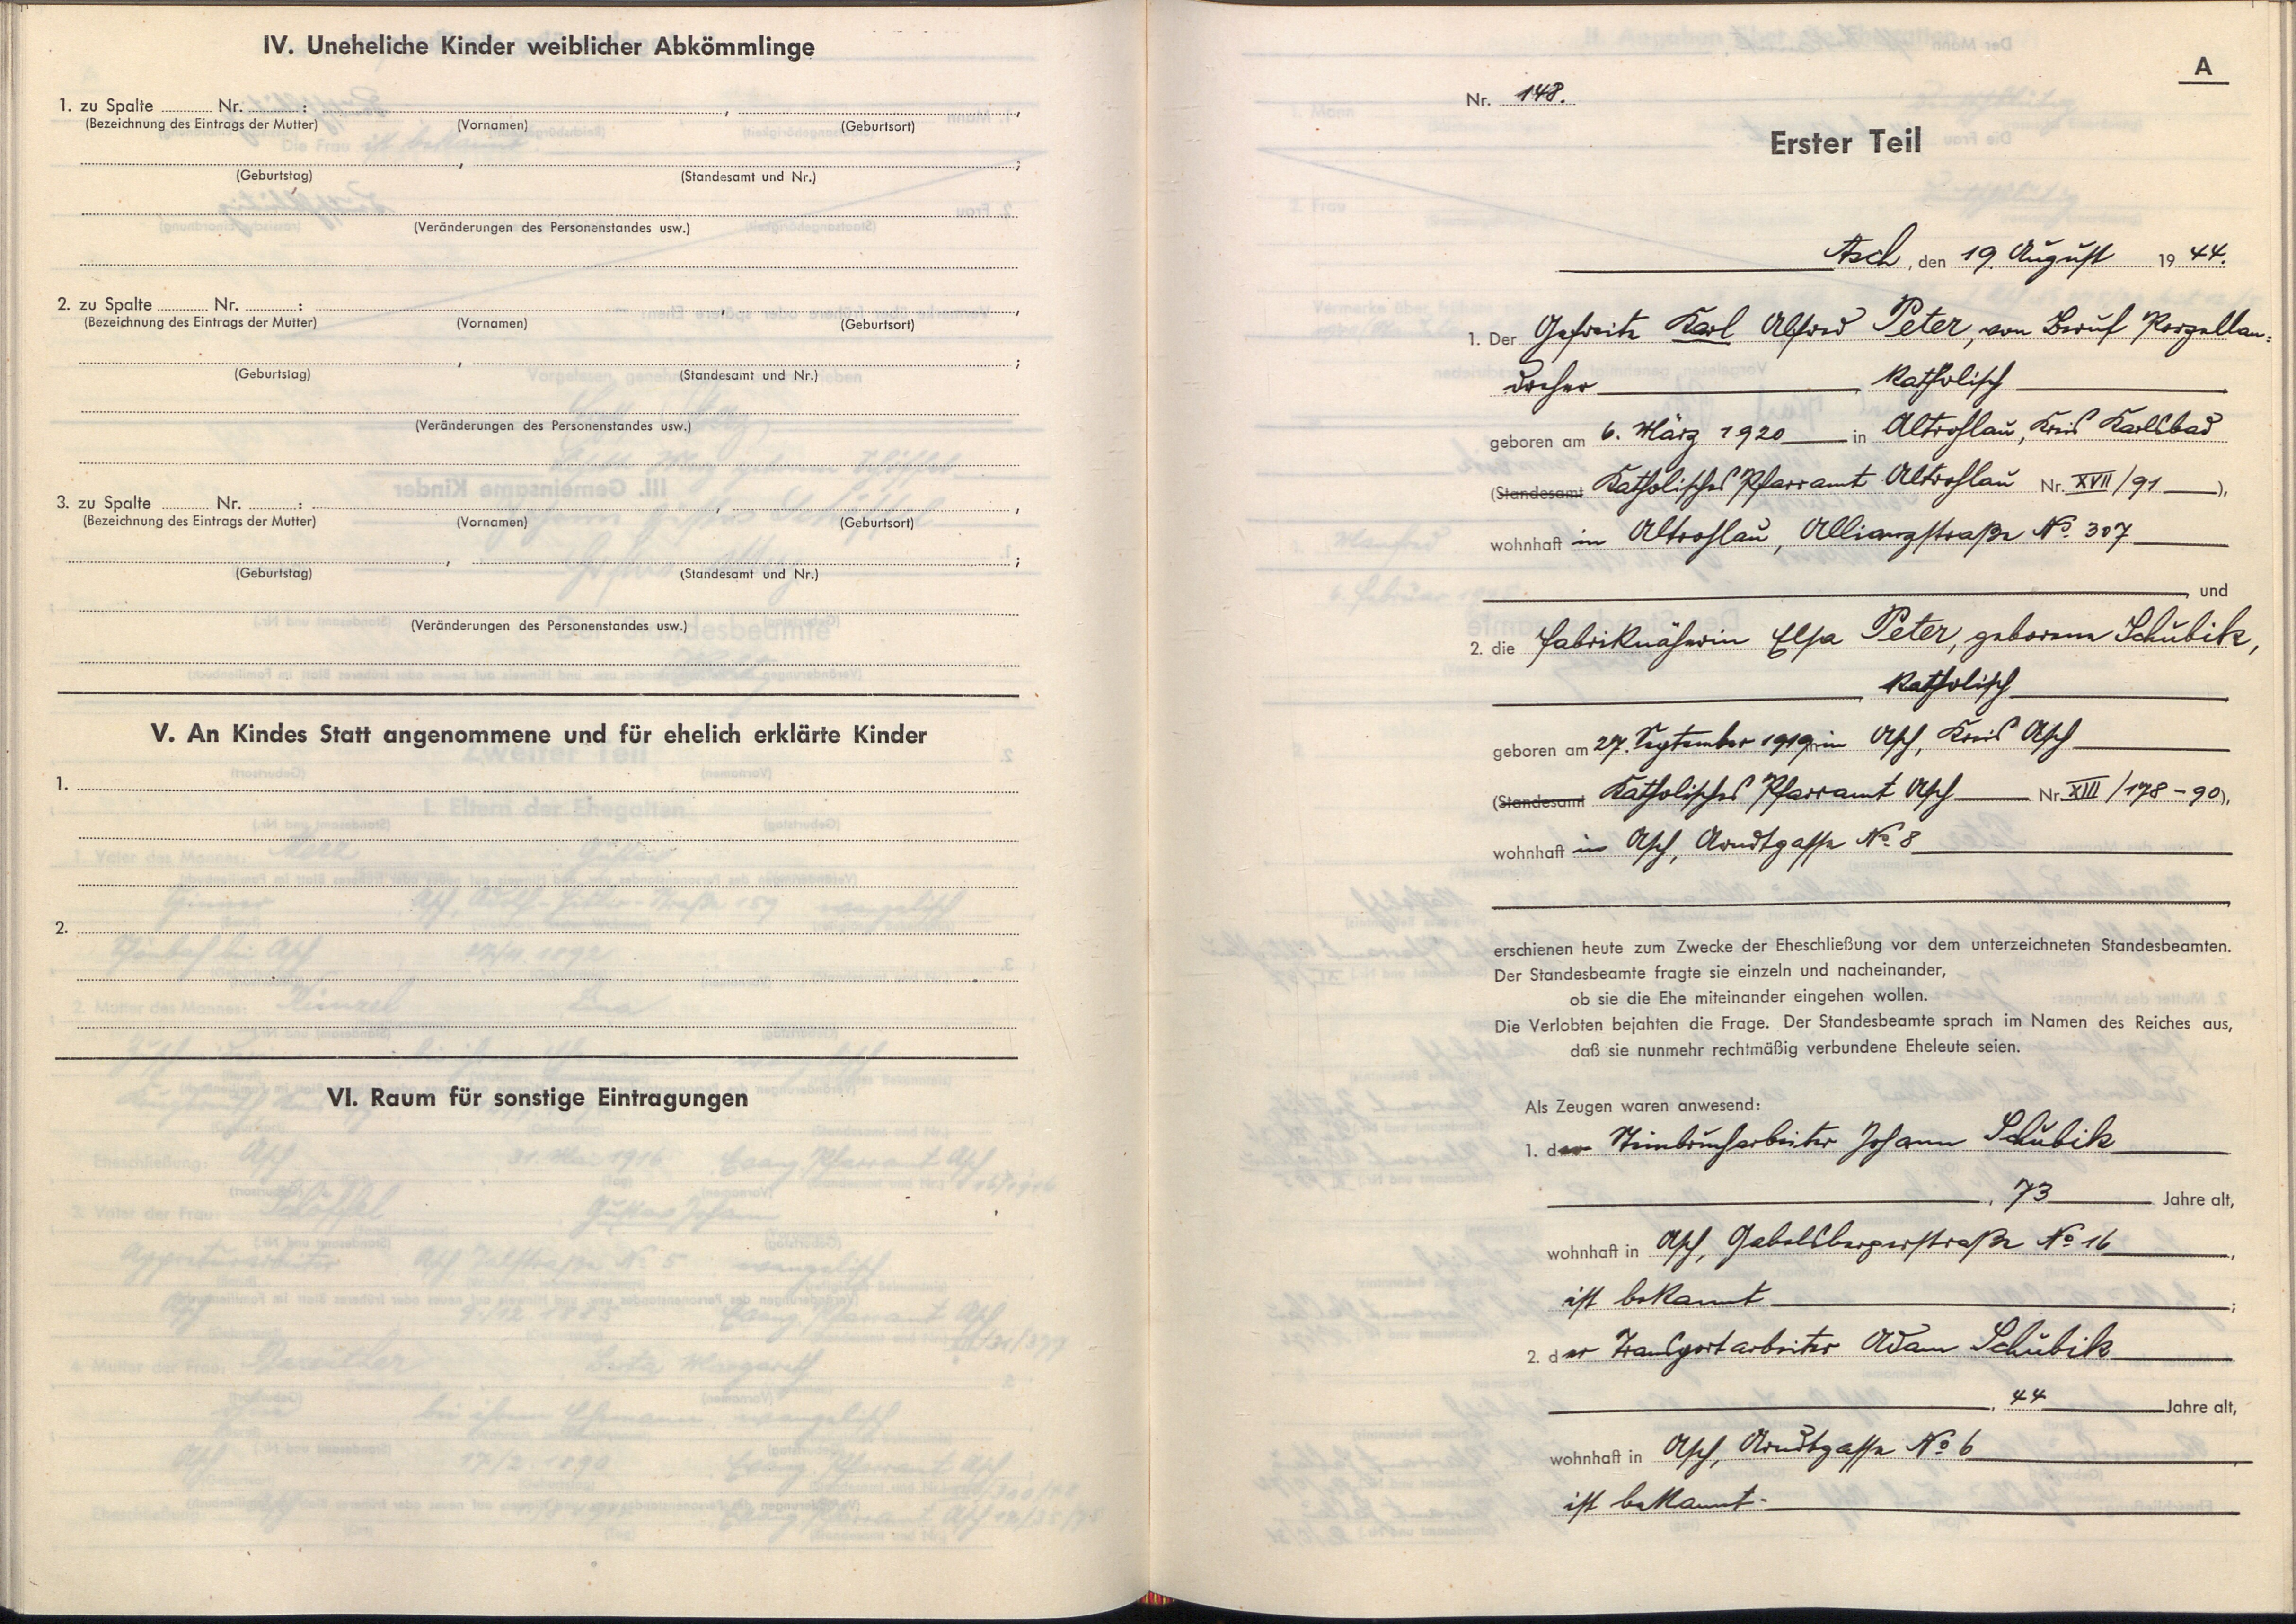 IV. Uneheliche Kinder weiblicher Abkömmlinge
1. zu Spalte ........ Nr. ........:
(Bezeichnung des Eintrags der Mutter) (Vornamen) (Geburtsort)
(Geburtstag) (Standesamt und Nr.)
(Veränderungen des Personenstandes usw.)
2. zu Spalte ........ Nr. ........:
(Bezeichnung des Eintrags der Mutter) (Vornamen) (Geburtsort)
(Geburtstag) (Standesamt und Nr.)
(Veränderungen des Personenstandes usw.)
3. zu Spalte ........ Nr. ........:
(Bezeichnung des Eintrags der Mutter) (Vornamen) (Geburtsort)
(Geburtstag) (Standesamt und Nr.)
(Veränderungen des Personenstandes usw.)
V. An Kindes Statt angenommene und für ehelich erklärte Kinder
1.
2.
VI. Raum für sonstige Eintragungen
A
Nr. 148.
Erster Teil
Asch, den 19. August 1944.
1. Der Gefreite Karl Alfred Peter, von Beruf Porzellan-
dreher, katholisch
geboren am 6. März 1920 in Altrohlau, Kreis Karlsbad
(Standesamt Katholisches Pfarramt Altrohlau Nr. XVII/91),
wohnhaft in Altrohlau, Allianzstraße No. 307
, und
2. die Fabriknäherin Elsa Peter, geborene Schubik,
, katholisch
geboren am 27. September 1919 in Asch, Kreis Asch
(Standesamt Katholisches Pfarramt Asch Nr. XIII/178-90),
wohnhaft in Asch, Arndtgasse No. 8
erschienen heute zum Zwecke der Eheschließung vor dem unterzeichneten Standesbeamten.
Der Standesbeamte fragte sie einzeln und nacheinander,
ob sie die Ehe miteinander eingehen wollen.
Die Verlobten bejahten die Frage. Der Standesbeamte sprach im Namen des Reiches aus,
daß sie nunmehr rechtmäßig verbundene Eheleute seien.
Als Zeugen waren anwesend:
1. der Steinbrucharbeiter Johann Schubik
, 73 Jahre alt,
wohnhaft in Asch, Gabelsbergerstraße No. 16,
ist bekannt;
2. der Transportarbeiter Adam Schubik
, 44 Jahre alt,
wohnhaft in Asch, Arndtgasse No. 6,
ist bekannt.